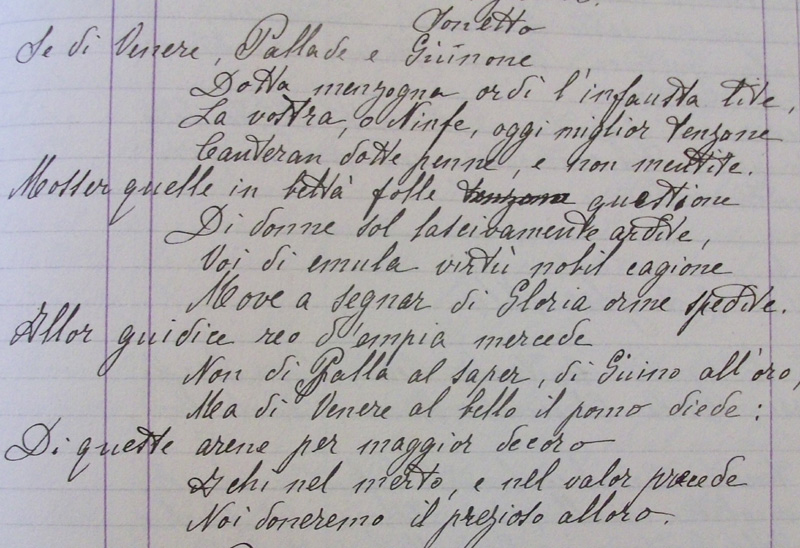 Sonetto
Se di Venere, Pallade e Giunone
Dotta menzogna ordì l'infausta lite,
La vostra, o Ninfe, oggi miglior tenzone
Canteran dotte penne, e non mentite.
Mosser quelle in beltà folle tenzone questione
Di donne sol lascivamente ardite,
Voi di emula virtù nobil cagione
Move a segnar di Gloria orme spedite.
Allor guidice reo d'empia mercede
Non di Palla al saper, di Giuno all'oro,
Ma di Venere al bello il pomo diede:
Di queste arene per maggior decoro
A chi nel merto, e nel valor precede
Noi doneremo il prezioso alloro.